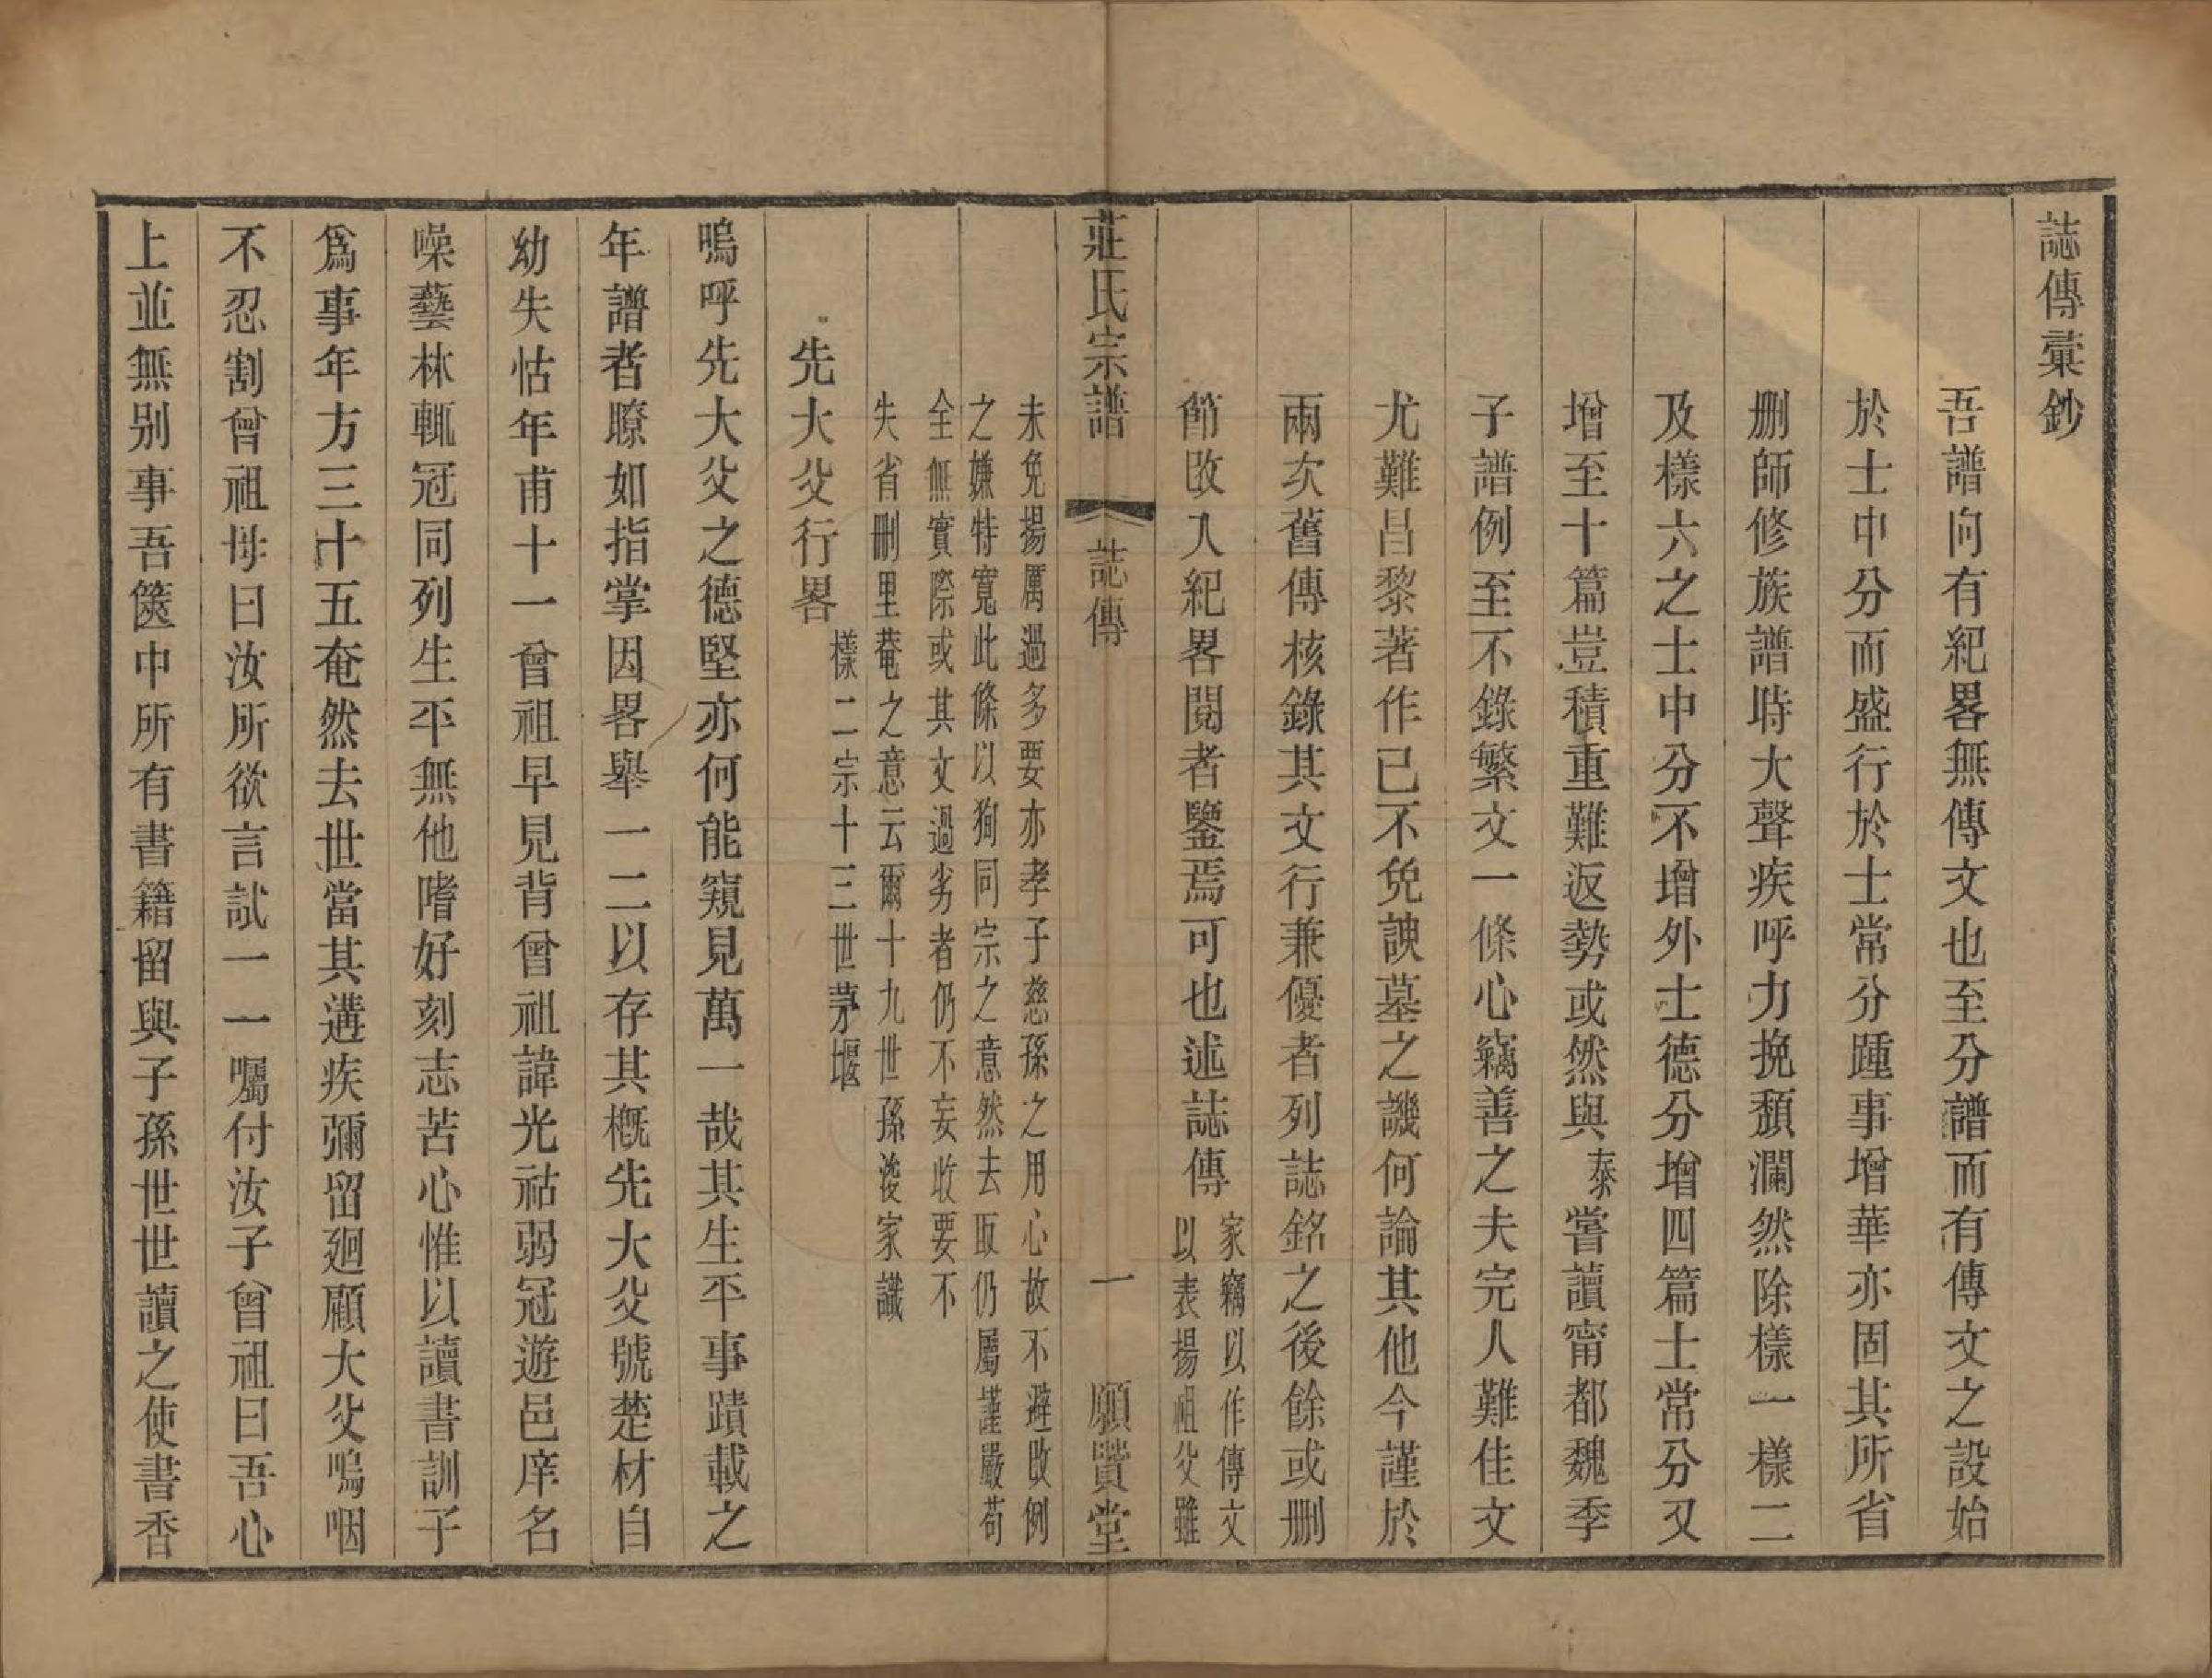 誌傳彙鈔
吾譜向有紀畧無傳文也至分譜而有傳文之設始
於士中分而盛行於士常分踵事增華亦固其所省
删師修族譜時大聲疾呼力挽頹瀾然除樣一樣二
及樣六之士中分不增外士德分增四篇士常分又
增至十篇豈積重難返勢或然與泰嘗讀甯都魏季
子譜例至不錄繁文一條心竊善之夫完人難佳文
尤難昌黎著作已不免諛墓之譏何論其他今謹於
兩次舊傳核錄其文行兼優者列誌銘之後餘或删
節改入紀畧閱者鑒焉可也述誌傳
家竊以作傳文
以表揚祖父雖
莊氏宗譜 誌傳 一 願賢堂
未免揚厲過多要亦孝子慈孫之用心故不避改例
之嫌特寬此條以狥同宗之意然去取仍屬謹嚴苟
全無實際或其文過劣者仍不妄收要不
失省删里菴之意云爾十九世孫浚家識
先大父行畧
樣二宗十三世茅堰
嗚呼先大父之德堅亦何能窺見萬一哉其生平事蹟載之
年譜者瞭如指掌因畧舉一二以存其概先大父號楚材自
幼失怙年甫十一曾祖早見背曾祖諱光祜弱冠遊邑庠名
噪藝林輒冠同列生平無他嗜好刻志苦心惟以讀書訓子
爲事年方三十五奄然去世當其遘疾彌留廻顧大父嗚咽
不忍割曾祖母曰汝所欲言試一一囑付汝子曾祖曰吾心
上並無别事吾篋中所有書籍留與子孫世世讀之使書香